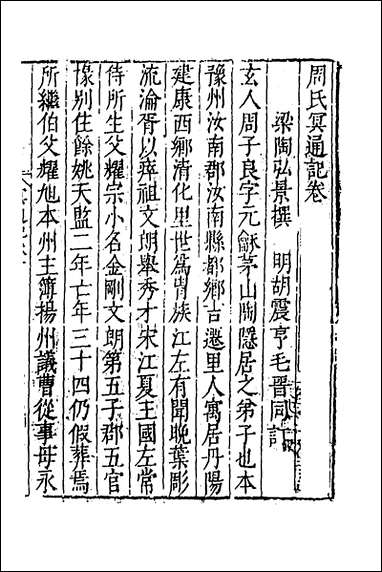 周氏冥通記卷
梁陶弘景撰　明胡震亨毛晋同訂
玄人周子良字元龢茅山陶隱居之弟子也本
豫州汝南郡汝南縣都鄉吉遷里人寓居丹陽
建康西鄉清化里世爲胄族江左有聞晚葉彫
流淪胥以瘁祖文朗舉秀才宋江夏王國左常
侍所生父耀宗小名金剛文朗第五子郡五官
掾別住餘姚天監二年亡年三十四仍假葬焉
所繼伯父耀旭本州主簿揚州議曹從事母永